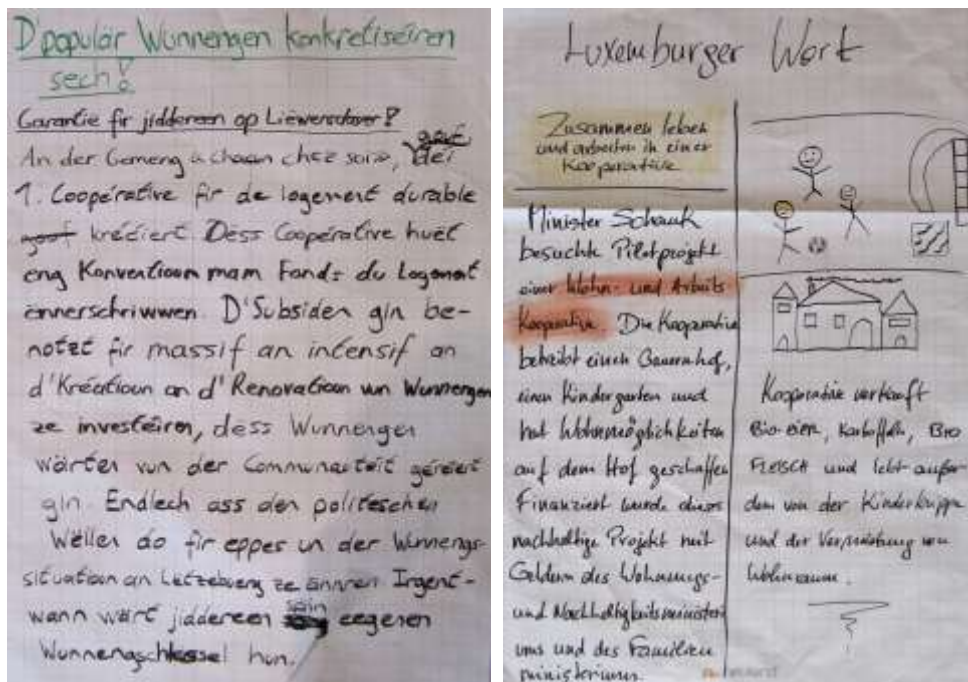 D'populär Wunnengen konkretiséiren
sech!
Garantie fir jiddereen op Liewensdauer?
An der Gemeng à chacun chez soi», gouf déi
1. Coopérative fir de logement durable
krééiert. Dess Coopérative huet
eng Konventioun mam Fonds du Logement
ënnerschriwwen. D'Subsiden gin be-
notzt fir massif an intensif an
d'Kréatioun an d'Renovatioun vun Wunnengen
ze investéiren, dess Wunnengen
wärten vun der Communautéit geréiert
gin. Endlech ass den politeschen
Wëllen do fir eppes un der Wunnengs-
situatioun an Lëtzebuerg ze ännren. Irgent-
wann wärt jiddereen säin eegenen
Wunnengschlëssel hun.
Luxemburger Wort
Zusammen leben
und arbeiten in einer
Kooperative
Minister Schank
besuchte Pilotprojekt
einer Wohn- und Arbeits
Kooperative. Die Kooperative
betreibt einen Bauernhof,
einen Kindergarten und
hat Wohnmöglichkeiten
auf dem Hof geschaffen
Finanziert wurde dieses
nachhaltige Projekt mit
Geldern des Wohnungs-
und Nachhaltigkeitsministeri
ums und des Familien
ministeriums.
Kooperative verkauft
Bio-eier, Kartoffeln, BIO
FLEISCH und lebt außer-
dem von der Kinderkrippe
und der Vermietung von
Wohnraum.